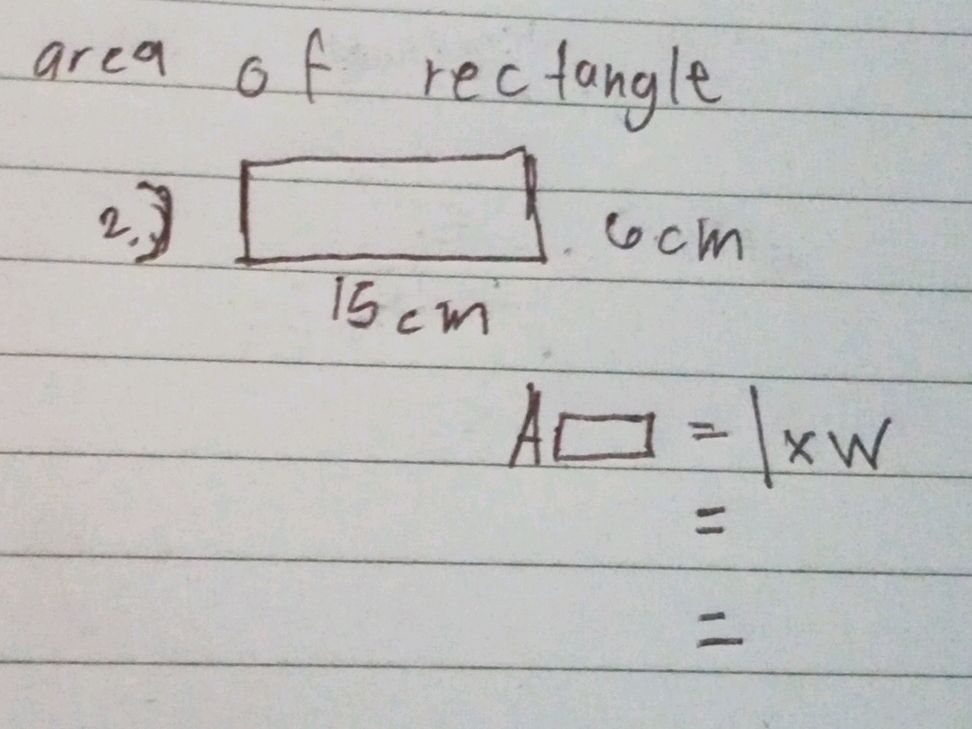 area of rectangle
2.)
6cm
15cm
A▭ = l x W
=
=